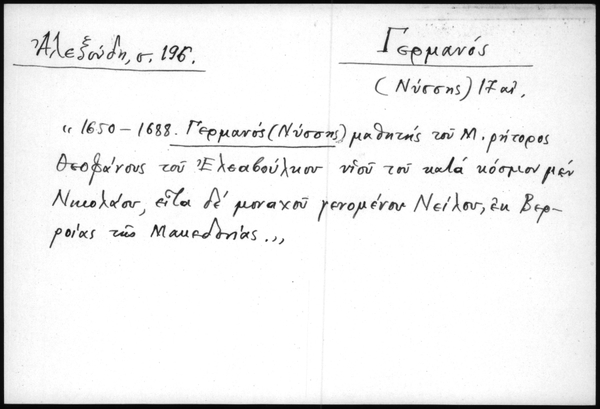 Ἀλεξούδη, σ. 196.
Γερμανός
(Νύσσης) 17 αἰ.
" 1650 – 1688. Γερμανός (Νύσσης) μαθητής τοῦ Μ. ρήτορος
Θεοφάνους τοῦ Ἐλεαβούλκου υἱοῦ τοῦ κατά κόσμον μέν
Νικολάου, εἶτα δέ μοναχοῦ γενομένου Νείλου, ἐκ Βερ-
ροίας τῆς Μακεδονίας. "